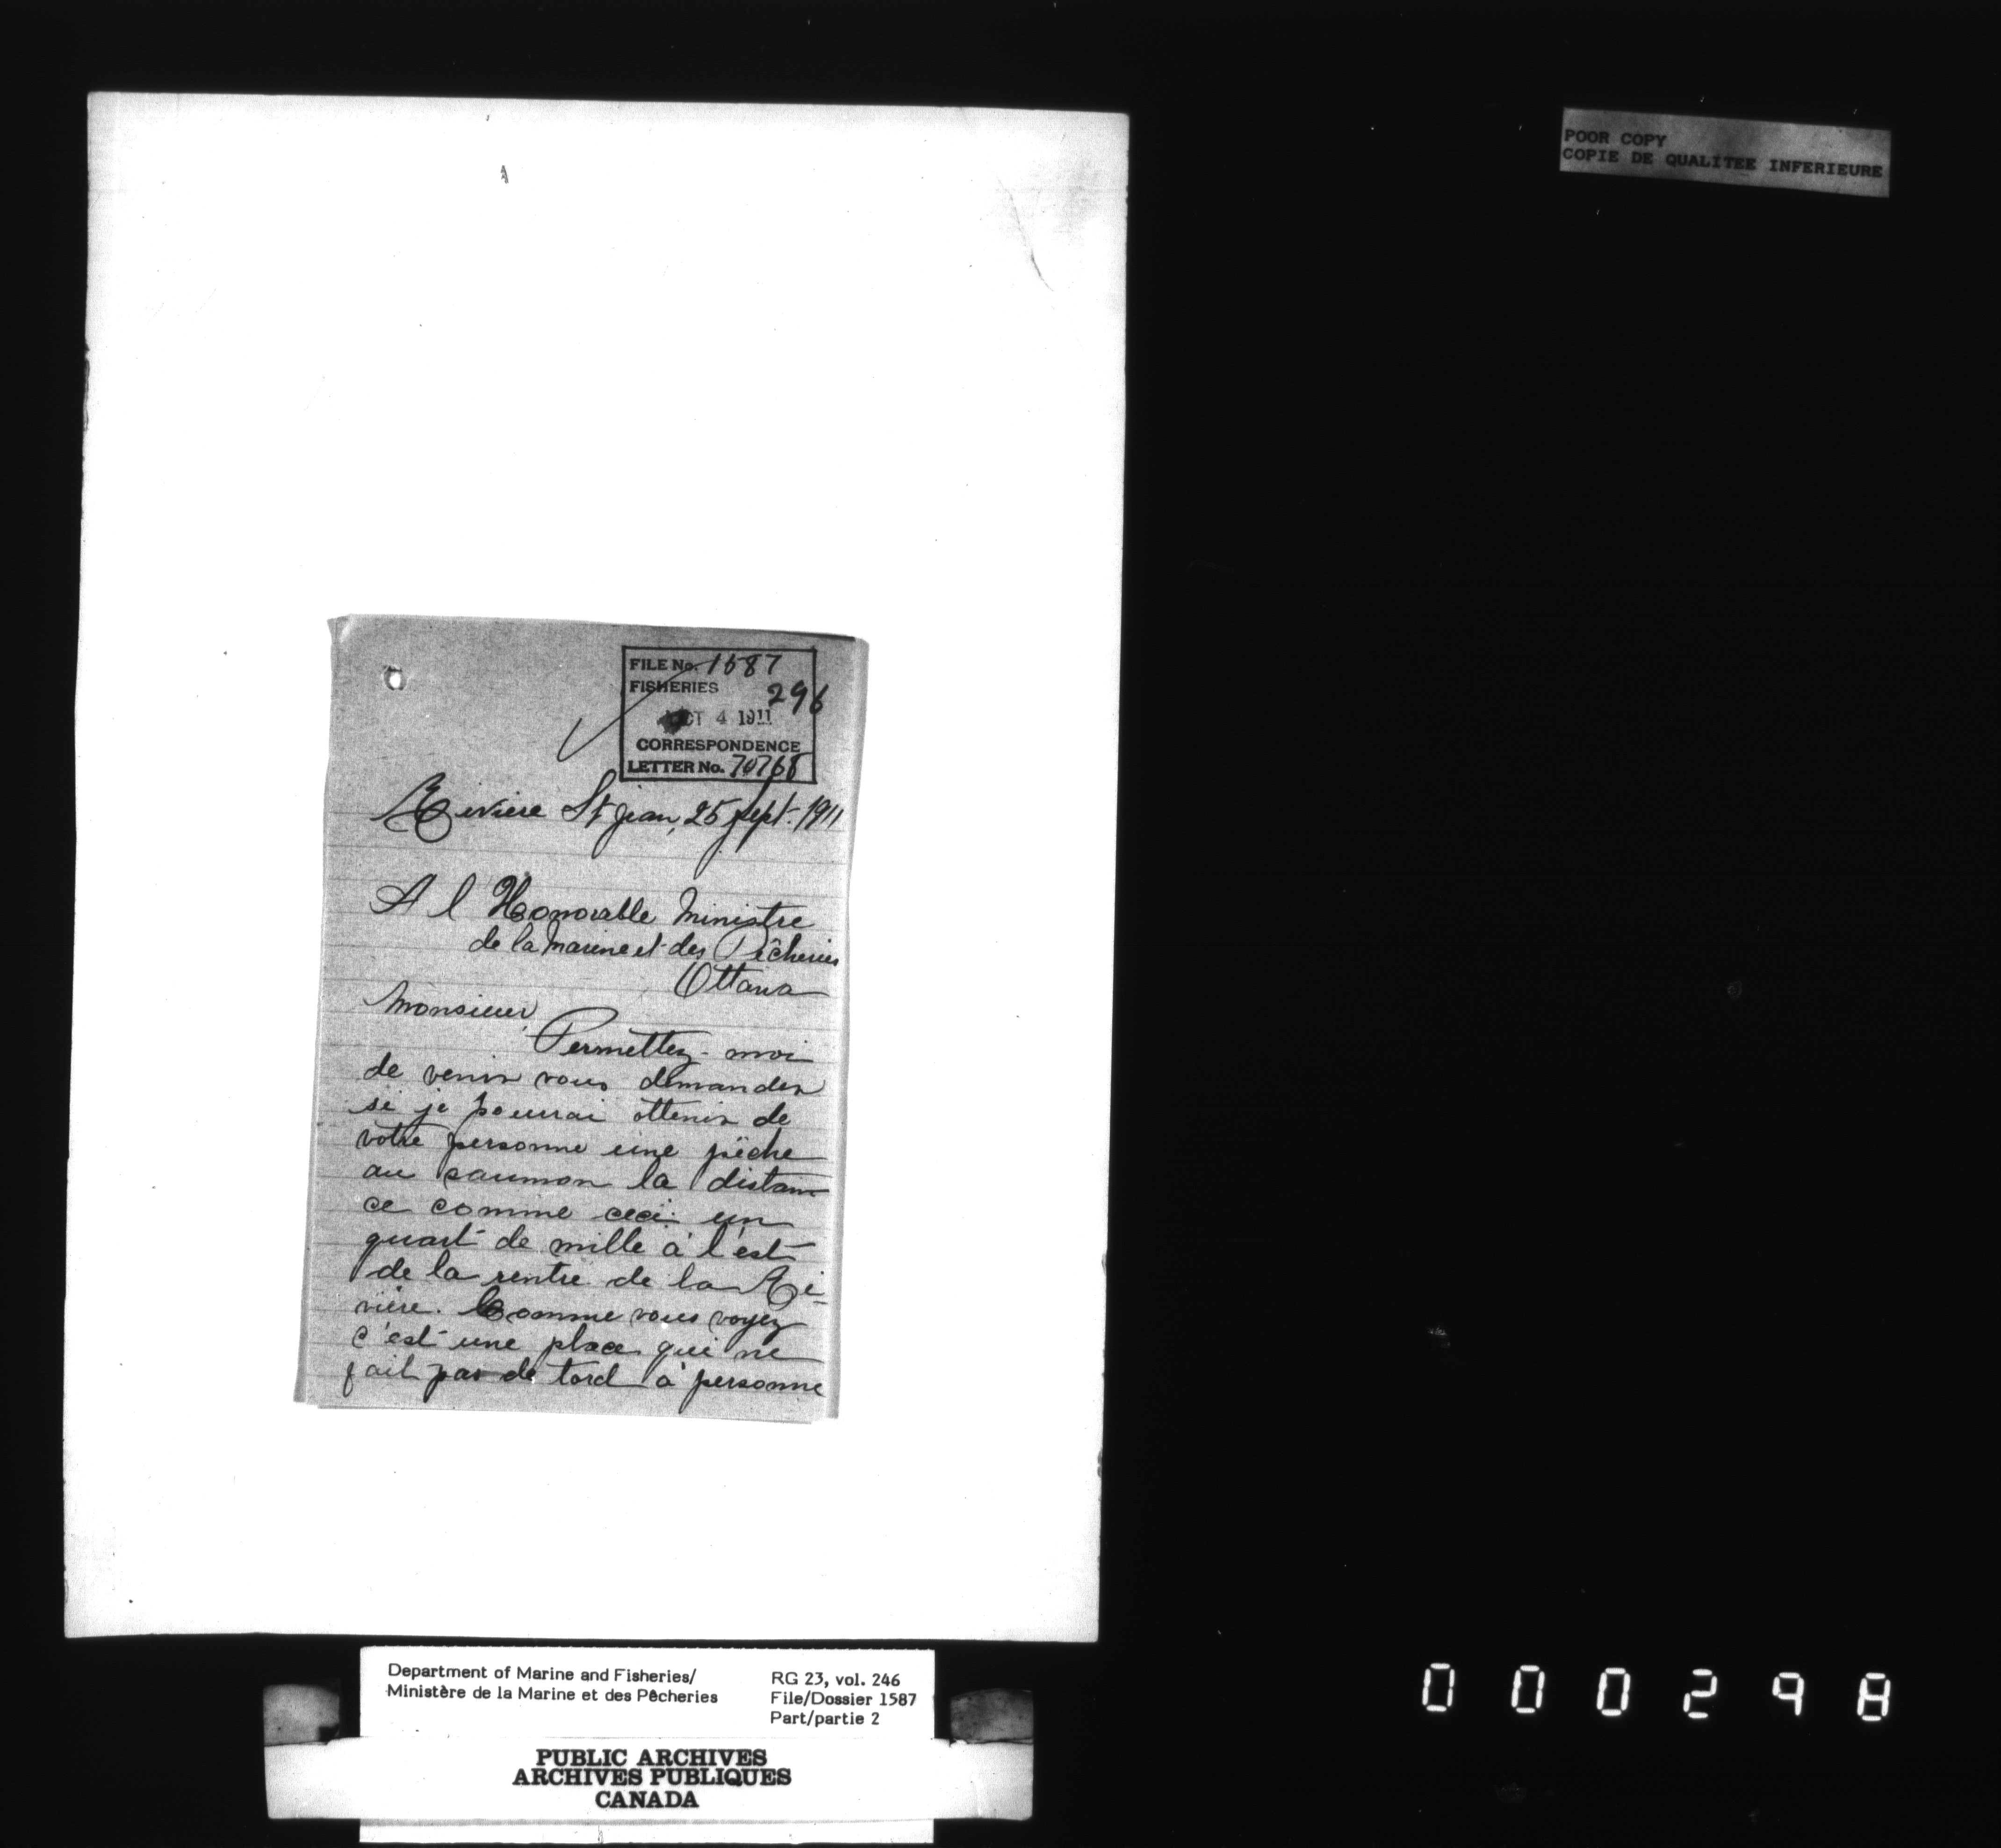 POOR COPY
COPIE DE QUALITEE INFERIEURE
FILE No. 1587
FISHERIES 296
OCT 4 1911
CORRESPONDENCE
LETTER No. 70768
Rivière St Jean, 25 Sept. 1911
A l'Honorable Ministre
de la Marine et des Pêcheries
Ottawa
Monsieur,
Permettez-moi
de venir vous demander
si je pourrai ottenir de
votre personne une pêche
au saumon la distan
ce comme ceci: un
quart de mille à l'est
de la rentré de la Ri-
vière. Comme vous voyez
c'est une place qui ne
fait pas de tord à personne
Department of Marine and Fisheries/
Ministère de la Marine et des Pêcheries
RG 23, vol. 246
File/Dossier 1587
Part/partie 2
PUBLIC ARCHIVES
ARCHIVES PUBLIQUES
CANADA
000298